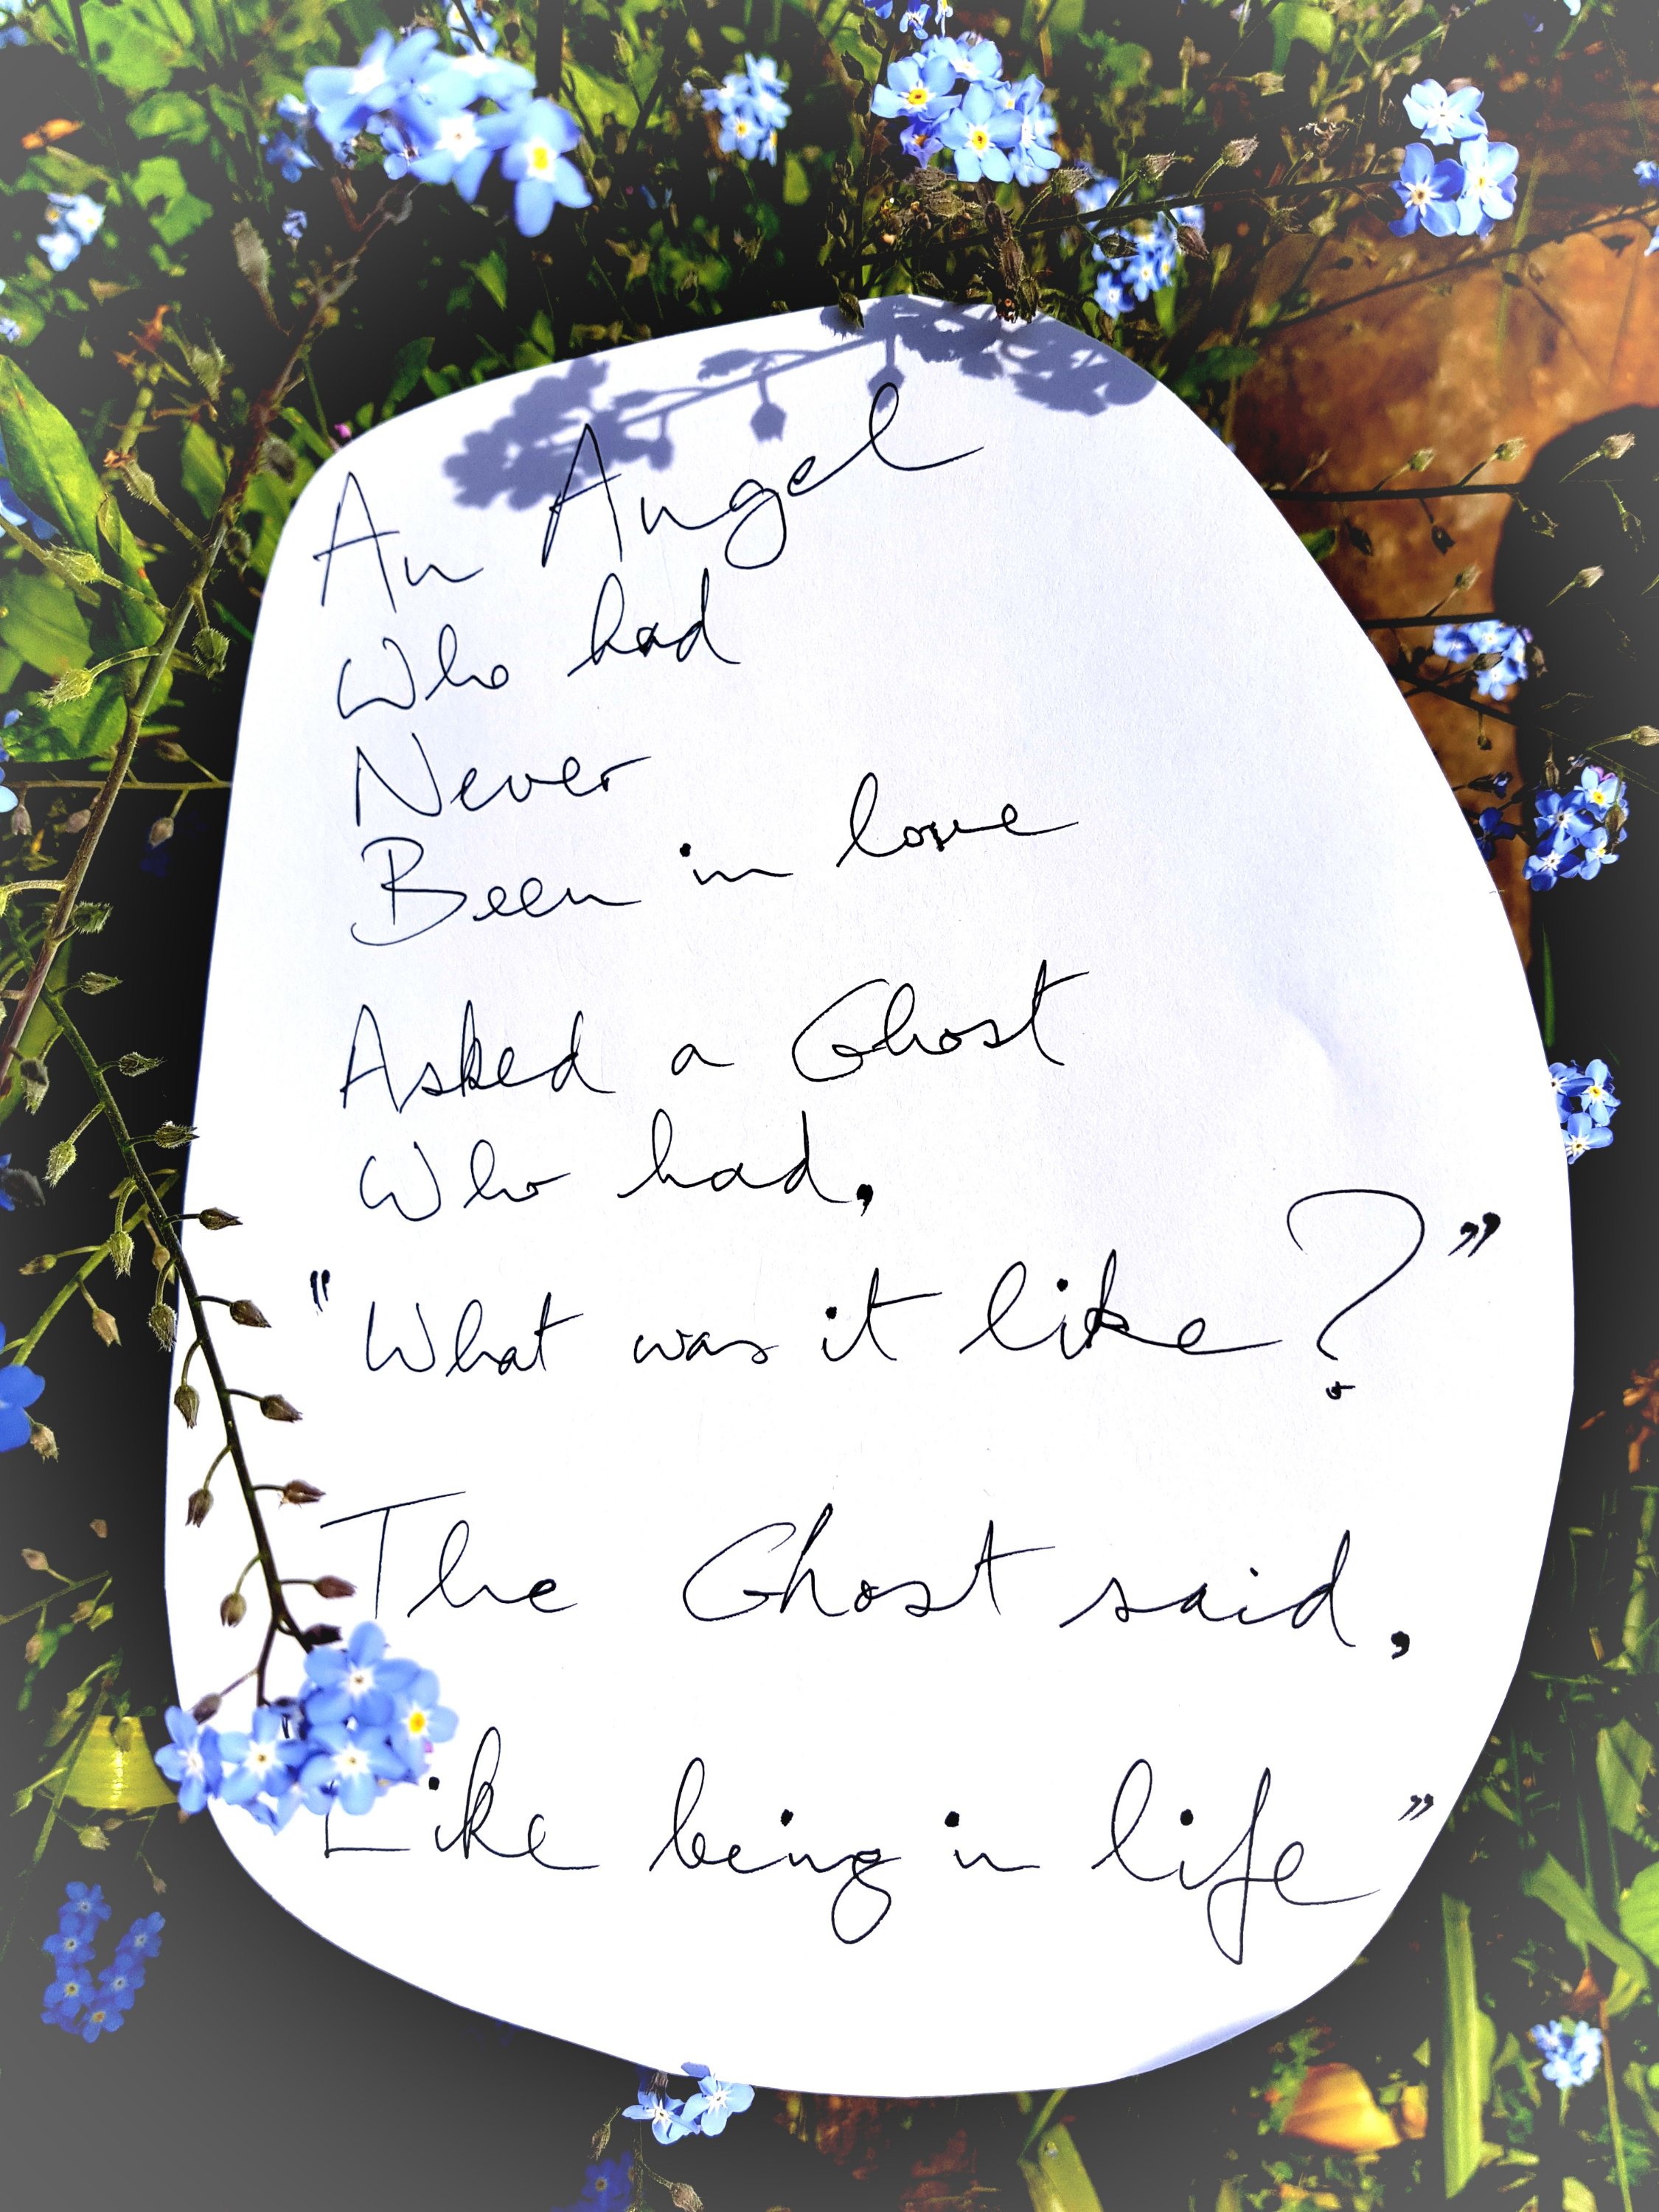 An Angel
Who had
Never
Been in love
Asked a Ghost
Who had,
"What was it like?”
The Ghost said,
Like being in life”